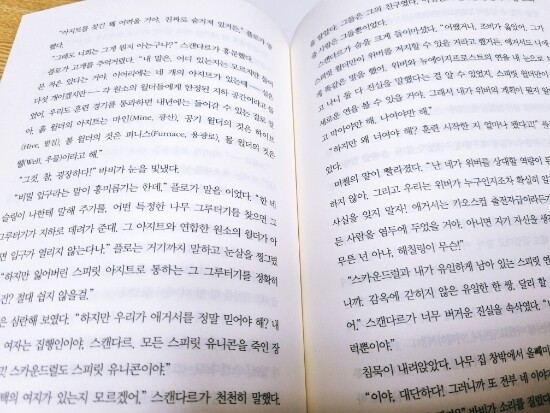 "아지트를 찾긴 꽤 어려울 거야. 진짜로 숨겨져 있거든." 플로가 
했다.
"그래도 너희는 그게 뭔지 아는구나?" 스캔다르가 흥분했다.
플로가 고개를 주억거렸다. "내 말은, 어디 있는지는 모르지만 들어
본 적은 있다는 거야. 아이어리에는 네 개의 아지트가 있는데
다섯 개이겠지만 각 원소의 윌더들에게 한정된 지하 공간이라고
없어. 우리도 훈련 경기를 통과하면 내년에는 들어갈 수 있는 걸로
아. 흙 윌더의 아지트는 마인(Mine, 광산), 공기 윌더의 것은 하이브
(Hive, 벌집), 불 윌더의 것은 퍼니스(Furnace, 용광로), 물 윌더의 것은
웰(Well, 우물)이라고 해."
"그것, 참, 굉장하다!" 바비가 눈을 빛냈다.
"비밀 입구라는 말이 흥미롭기는 한데," 플로가 말을 이었다. "한 번
슬링이 나한테 말해 주기를, 어떤 특정한 나무 그루터기를 찾으면 그
그루터기가 지하로 데려가 준대. 그 아지트와 연합한 원소의 윌더가 아
면 입구가 열리지 않는다나." 플로는 거기까지 말하고 눈살을 찡그렸
"하지만 잃어버린 스피릿 아지트로 통하는 그 그루터기를 정확히
건? 절대 쉽지 않을걸."
은 심란해 보였다. "하지만 우리가 애거서를 정말 믿어야 해? 내
여자는 집행인이야. 스캔다르, 모든 스피릿 유니콘을 죽인 장
및 스카운드럴도 스피릿 유니콘이야."
백의 여지가 있는지 모르겠어." 스캔다르가 천천히 말했다.
를 알았다. 그들은 그의 친구였다. 
사람은 그들뿐이었다.
스캔다르가 숨을 크게 들이마셨다. "어쨌거나, 조비가 옳았어, 그가
스피릿 윌더만이 위버를 저지할 수 있을 거라고 했거든, 애거서도
게 똑같은 말을 했어, 위버와 뉴에이지프로스트의 연을 내 눈으로
고 나니 둘 다 진실을 말했다는 걸 알 수 있겠어, 스피릿 윌더만이
새로운 연을 볼 수 있을 거야, 그래서 내가 위버의 계획이 뭔지
고 막아야만 해, 나여야만 해."
"하지만 왜 너여야 해? 훈련 시작한 지 얼마나 됐다고!"
미첼의 말이 빨라졌다. "난 네가 위버를 상대할 역량이
하지 않아. 그리고 우리는 위버가 누구인지조차 확실히
사실을 잊지 말자! 애거서는 카오스컵 출전자급이라든가
든 사람을 염두에 두었을 거야. 아니면 자기 자신을 생
무튼 넌 아냐, 해칠링이 무슨!"
"스카운드럴과 내가 유일하게 남아 있는 스피릿 연
니까. 감옥에 갇히지 않은 유일한 한 쌍, 달리 할
어," 스캔다르가 너무 버거운 진실을 속삭였다.
럭뿐이야."
침묵이 내려앉았다. 나무 집 창밖에서 올빼미
"이야, 대단하다! 그러니까 또 전부 네 이야
다." 바비가 소리를 질렀다